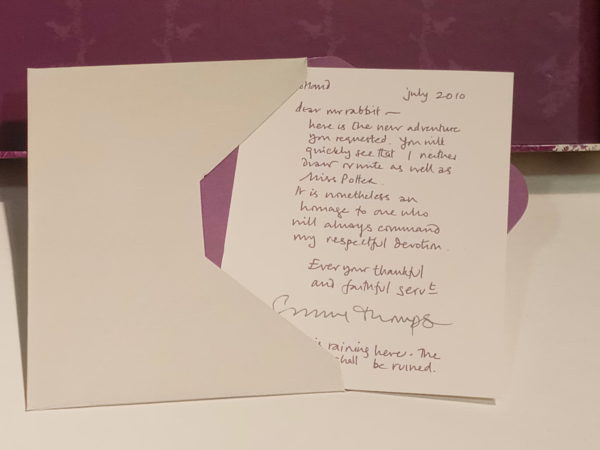 july 2010
dear mr rabbit —
here is the new adventure
you requested. You will
quickly see that I neither
draw or write as well as
Miss Potter.
It is nonetheless an
homage to one who
will always command
my respectful devotion.
Ever your thankful
and faithful servt
Emma Thompson
is raining here. The
shall be ruined.